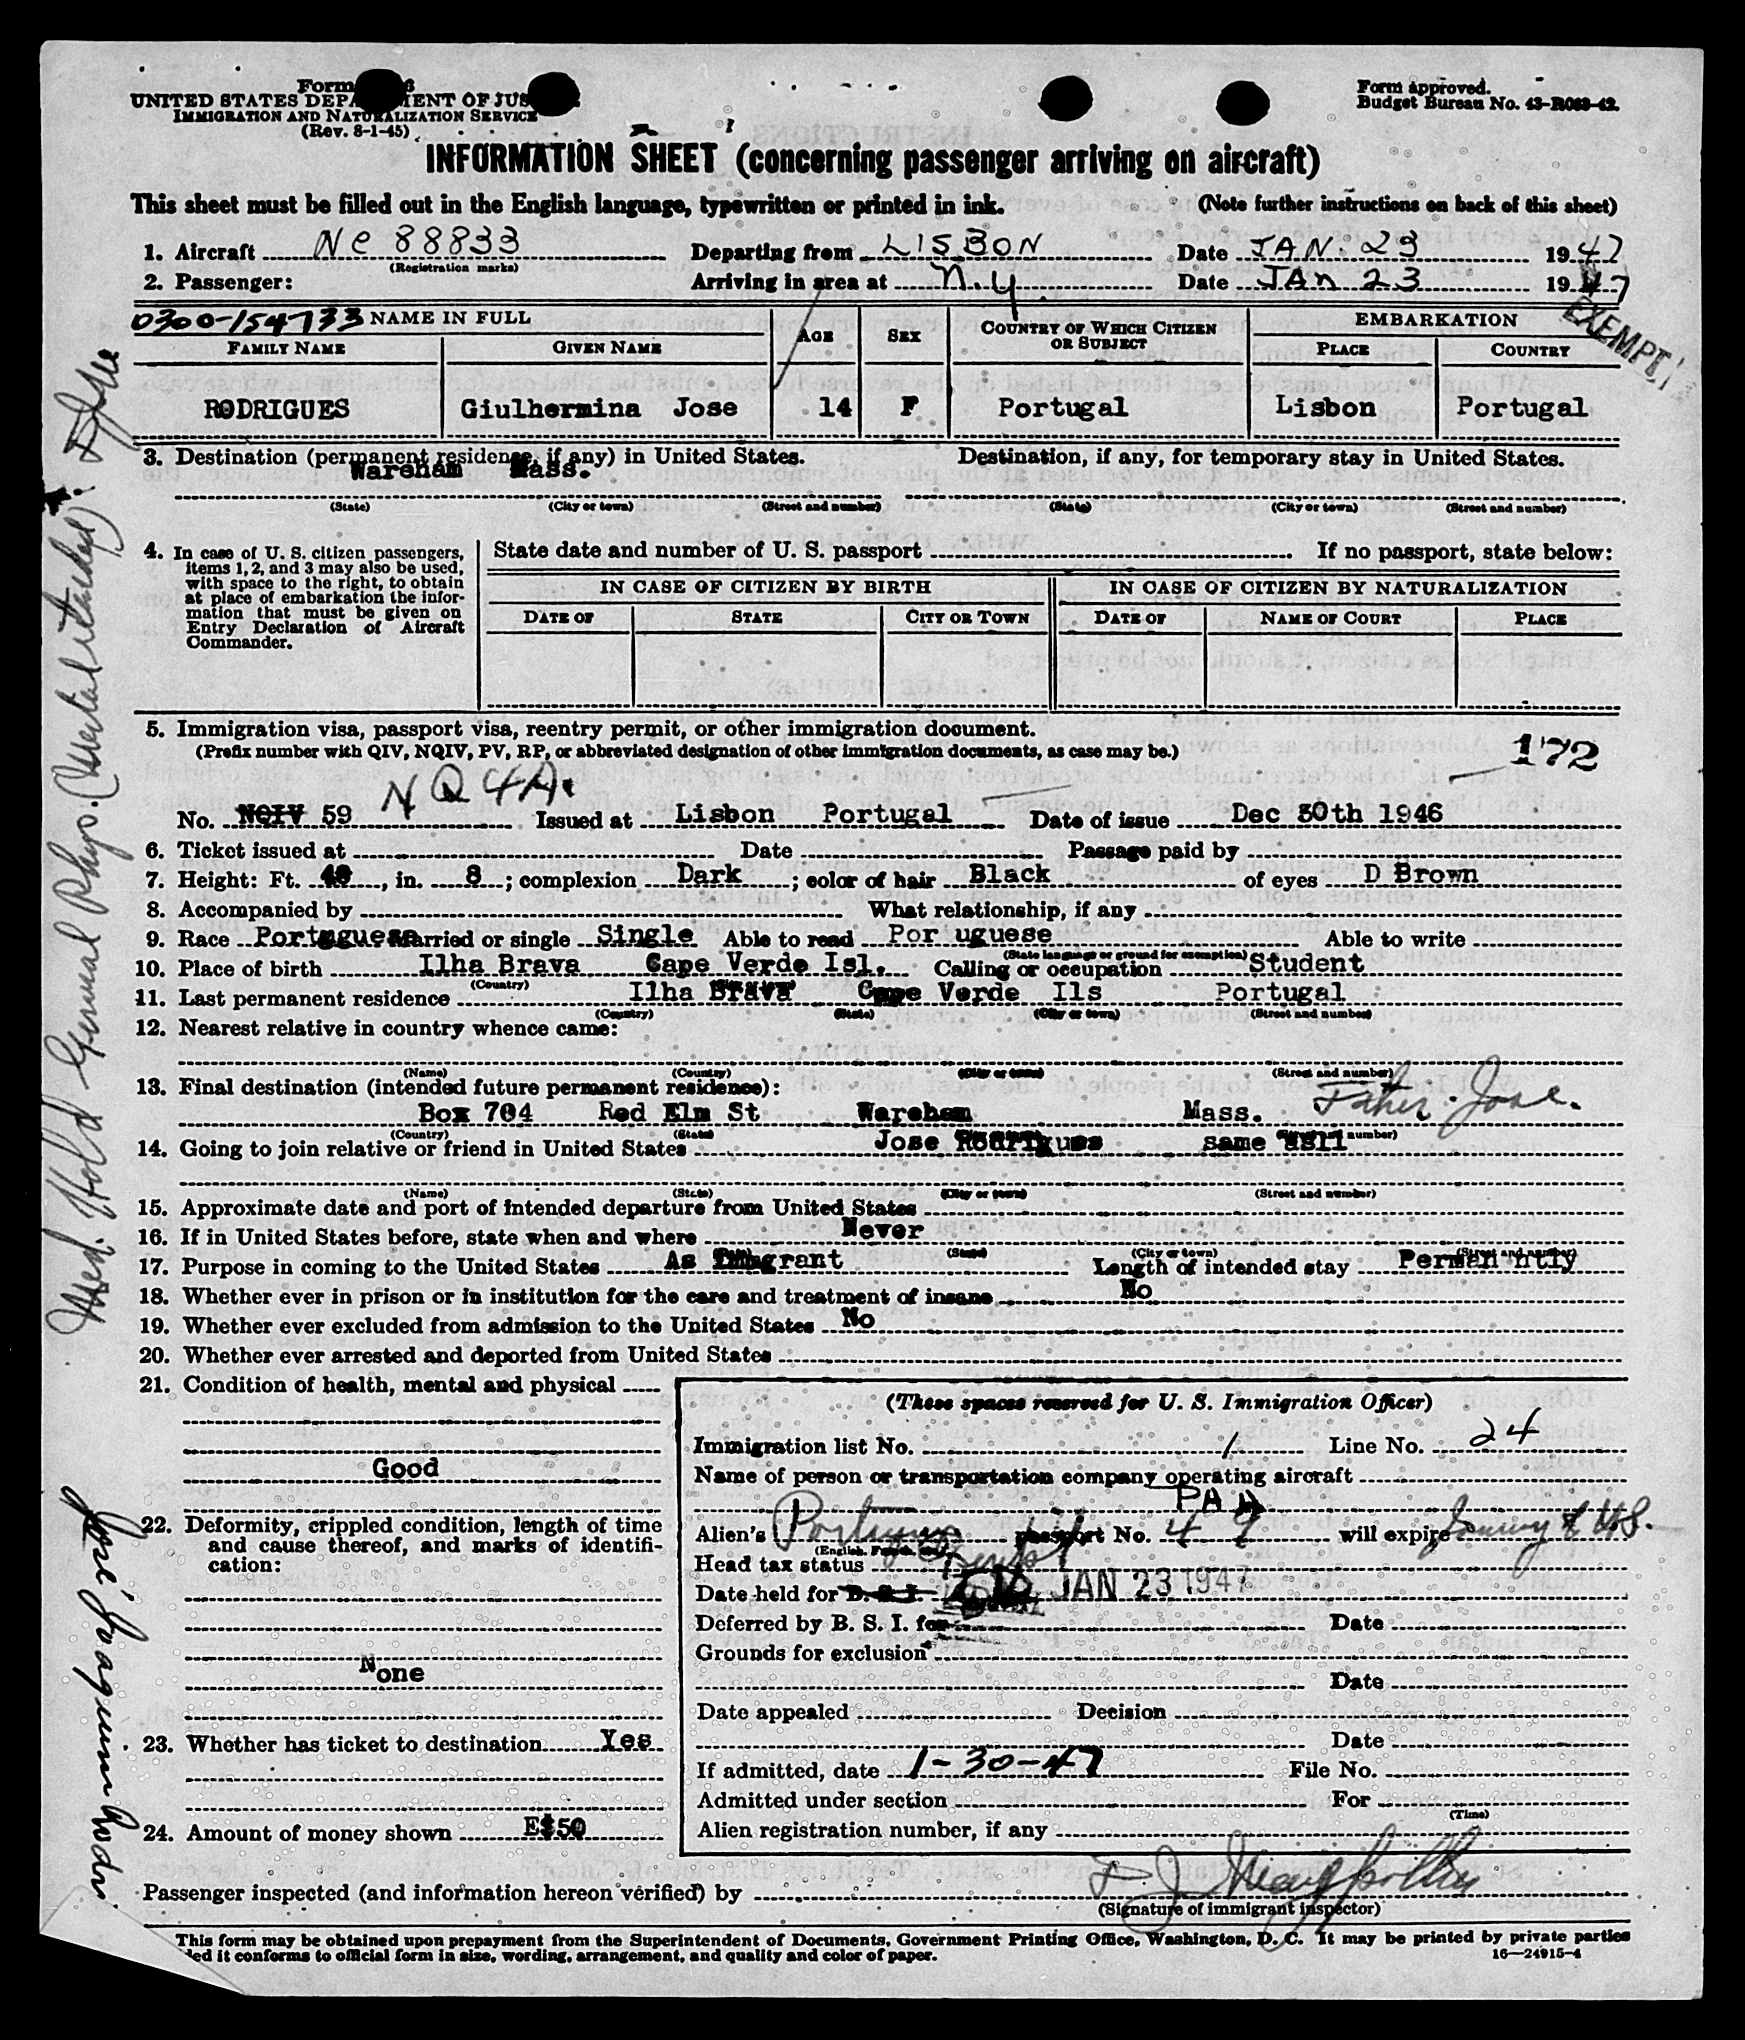 Form
UNITED STATES DEPARTMENT OF JUSTICE
IMMIGRATION AND NATURALIZATION SERVICE
(Rev. 8-1-45)
Form approved.
Budget Bureau No. 43-R083-42.
INFORMATION SHEET (concerning passenger arriving on aircraft)
This sheet must be filled out in the English language, typewritten or printed in ink. (Note further instructions on back of this sheet)
1. Aircraft NC 88833 Departing from LISBON Date JAN. 23 1947
(Registration marks)
2. Passenger: Arriving in area at N.Y. Date JAN 23 1947
EXEMPT
0300-154733 NAME IN FULL AGE SEX COUNTRY OF WHICH CITIZEN OR SUBJECT EMBARKATION
FAMILY NAME GIVEN NAME PLACE COUNTRY
RODRIGUES Giulhermina Jose 14 F Portugal Lisbon Portugal
3. Destination (permanent residence, if any) in United States. Destination, if any, for temporary stay in United States.
Wareham Mass.
(State) (City or town) (Street and number) (State) (City or town) (Street and number)
4. In case of U. S. citizen passengers, items 1, 2, and 3 may also be used, with space to the right, to obtain at place of embarkation the information that must be given on Entry Declaration of Aircraft Commander.
State date and number of U. S. passport If no passport, state below:
IN CASE OF CITIZEN BY BIRTH IN CASE OF CITIZEN BY NATURALIZATION
DATE OF STATE CITY OR TOWN DATE OF NAME OF COURT PLACE
5. Immigration visa, passport visa, reentry permit, or other immigration document.
(Prefix number with QIV, NQIV, PV, RP, or abbreviated designation of other immigration documents, as case may be.)
172
NQ 4A.
No. NQIV 59 Issued at Lisbon Portugal Date of issue Dec 30th 1946
6. Ticket issued at Date Passage paid by
7. Height: Ft. 4, in. 8; complexion Dark; color of hair Black of eyes D Brown
8. Accompanied by What relationship, if any
9. Race Portuguese Married or single Single Able to read Por uguese Able to write
(State language or ground for exemption)
10. Place of birth Ilha Brava Cape Verde Isl. Calling or occupation Student
(Country)
11. Last permanent residence Ilha Brava Cape Verde Ils Portugal
(Country) (State) (City or town) (Street and number)
12. Nearest relative in country whence came:
(Name) (Country) (City or town) (Street and number)
13. Final destination (intended future permanent residence):
Box 704 Red Elm St Wareham Mass. Father. Jose.
(Country) (State) (Street and number)
14. Going to join relative or friend in United States Jose Rodrigues same as11
(Name) (State) (City or town) (Street and number)
15. Approximate date and port of intended departure from United States
16. If in United States before, state when and where Never
(State) (City or town) (Street and number)
17. Purpose in coming to the United States As Immigrant Length of intended stay Perman ntly
18. Whether ever in prison or in institution for the care and treatment of insane No
19. Whether ever excluded from admission to the United States No
20. Whether ever arrested and deported from United States
21. Condition of health, mental and physical
Good
22. Deformity, crippled condition, length of time and cause thereof, and marks of identification:
None
23. Whether has ticket to destination Yes
24. Amount of money shown E$50
(These spaces reserved for U. S. Immigration Officer)
Immigration list No. 1 Line No. 24
Name of person or transportation company operating aircraft
PAA
Alien's passport No. 49 will expire
Head tax status
Date held for B. S. I. JAN 23 1947
Deferred by B. S. I. for Date
Grounds for exclusion
Date
Date appealed Decision
Date
If admitted, date 1-30-47 File No.
Admitted under section For
(Time)
Alien registration number, if any
Passenger inspected (and information hereon verified) by
(Signature of immigrant inspector)
This form may be obtained upon prepayment from the Superintendent of Documents, Government Printing Office, Washington, D. C. It may be printed by private parties
it conforms to official form in size, wording, arrangement, and quality and color of paper. 16—24915-4
Med. Hold General Phys. (Mental retardap).
José Joaquim Rodri